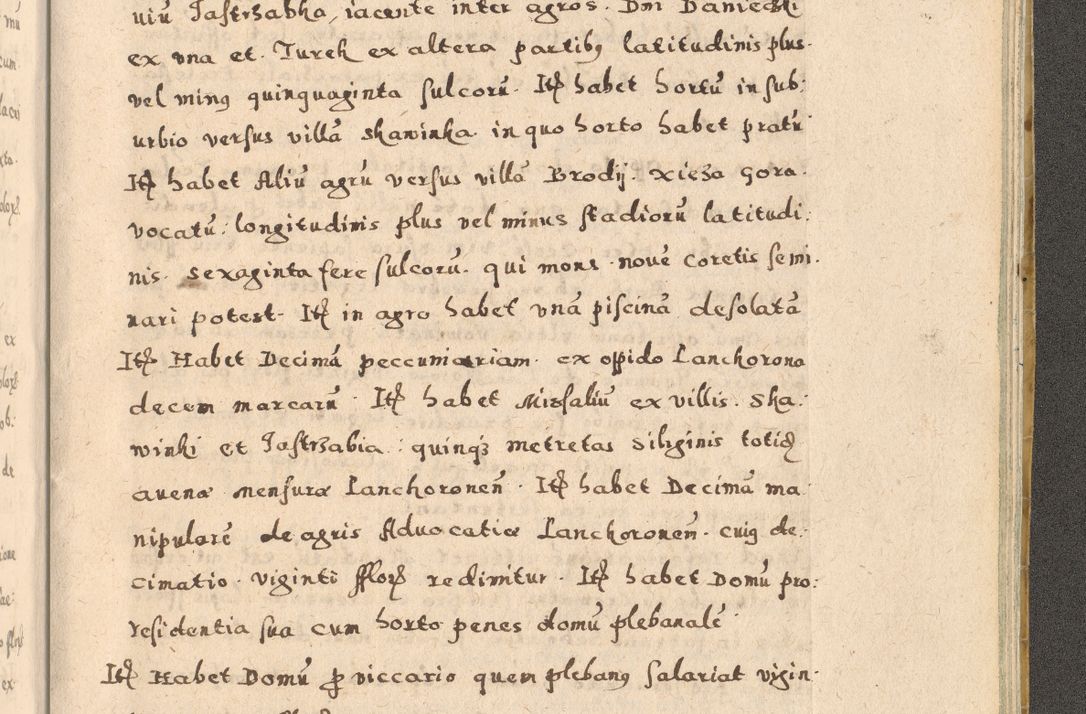 viũ Jastrzabka, iacente inter agros. Dni Daniecki
ex vna et. Turek ex altera partibꝫ latitudinis plus.
vel minꝰ quinquaginta sulcorũ. Itẽ habet hortũ in sub:
urbio versus villã skawinka. in quo horto habet pratũ
Itẽ habet Aliũ agrũ versus villã Brodij. xieza gora.
vocatũ: longitudinis plus vel minus stadiorũ latitudi:
nis. sexaginta fere sulcorũ. qui mons. nouẽ coretis semi.
nari potest. Itẽ in agro habet vnã piscinã desolatã
Itẽ Habet Decimã peccuniariam. ex oppido Lanchorona
decem marcarũ. Itẽ habet Missaliũ ex villis. Ska:
winki et Jastrzabia: quinqꝫ metretas siliginis totidẽ
auenæ mensuræ Lanchoronen̄. Itẽ habet Decimã ma
nipularẽ de agris Aduocatiæ Lanchoronen̄. cuiꝰ de:
cimatio. viginti fflorẽ redimitur. Itẽ habet Domũ pro:
residentia sua cum horto penes domũ plebanalẽ.
Itẽ Habet Domũ ꝓ viccario quem plebanꝰ salariat vigin: